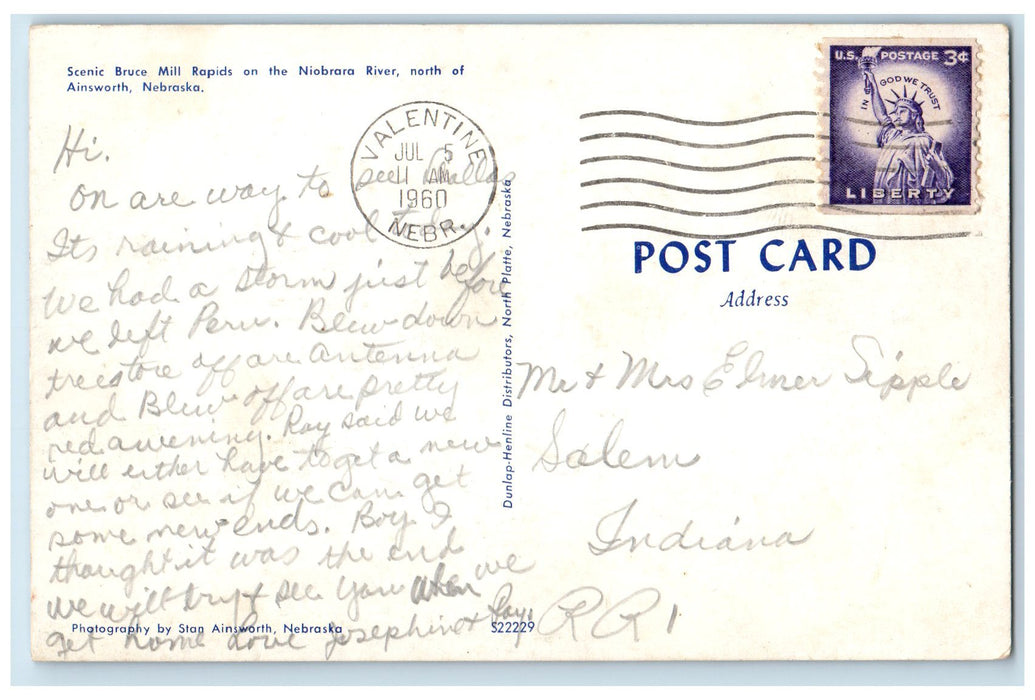 Scenic Bruce Mill Rapids on the Niobrara River, north of
Ainsworth, Nebraska.
Hi.
on are way to see Dallas
Its raining & cool today.
We had a storm just before
we left Peru. Blew down
trees tore off are antenna
and Blew off are pretty
red awening. Ray said we
will either have to get a new
one or see if we can get
some new ends. Boy I
thought it was the end
we will try & see you when we
get home Love Josephine & Ray.
Photography by Stan Ainsworth, Nebraska
S22229
Dunlap-Henline Distributors, North Platte, Nebraska
VALENTINE
JUL 5
11 AM
1960
NEBR.
U.S. POSTAGE 3¢
IN GOD WE TRUST
LIBERTY
POST CARD
Address
Mr & Mrs Elmer Sipple
Salem
Indiana
RR 1